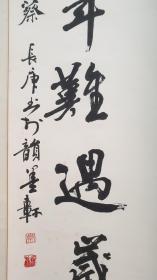 年難遇歲
蔡長庚书於韻墨軒